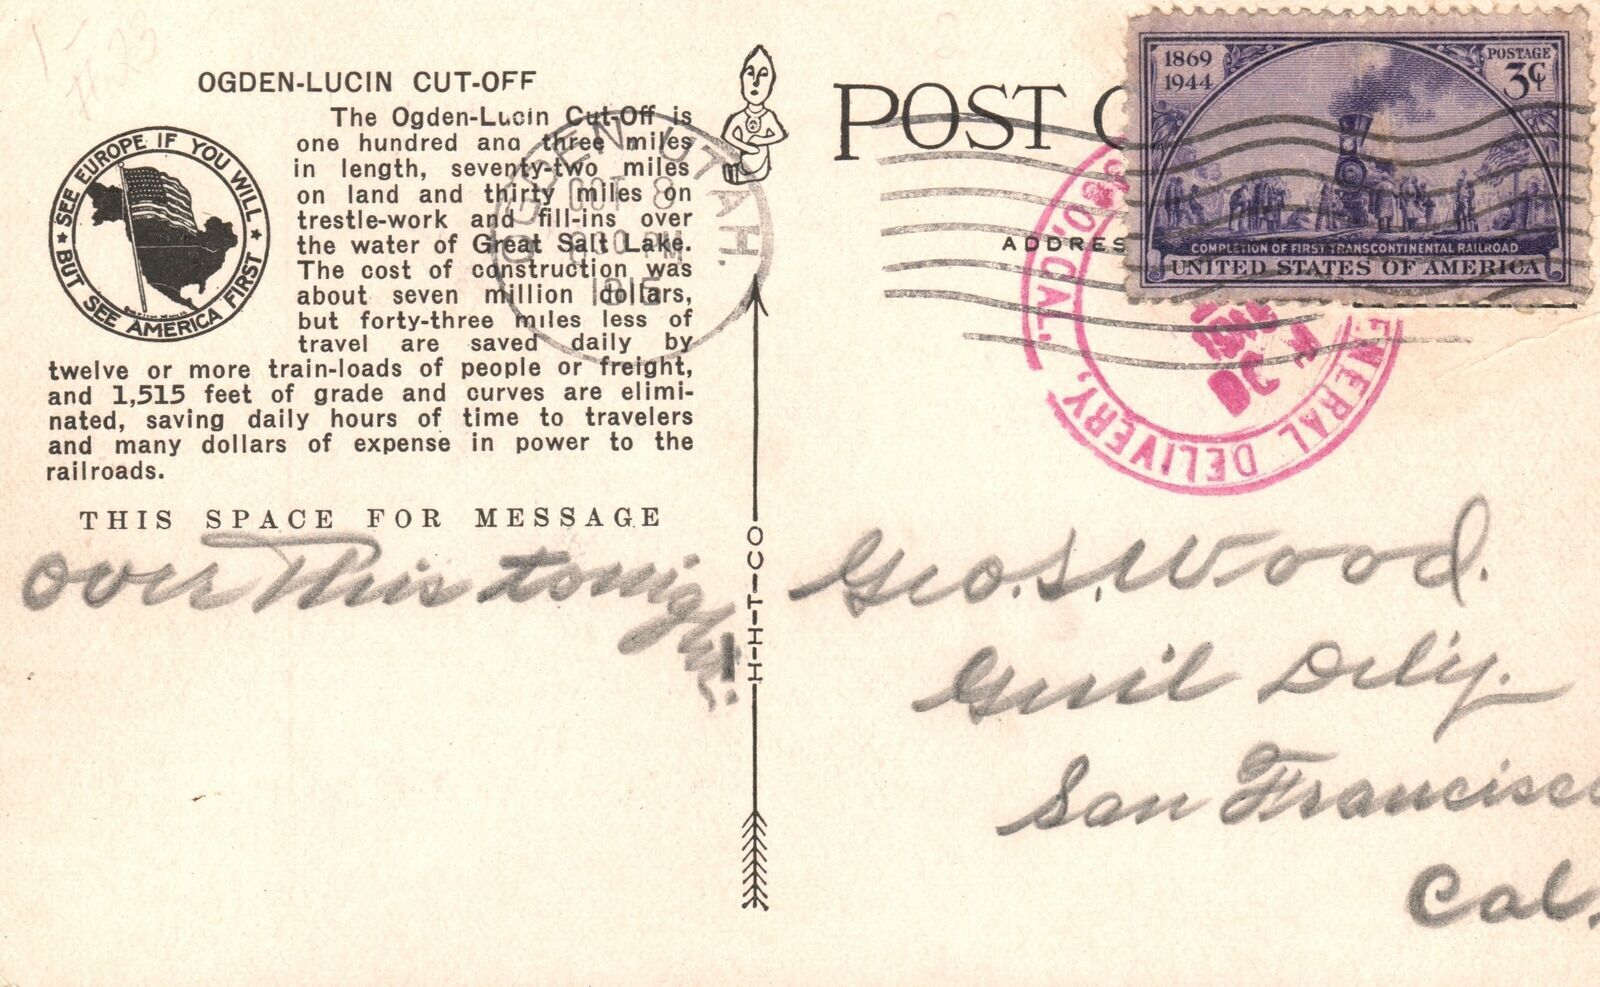 OGDEN-LUCIN CUT-OFF
The Ogden-Lucin Cut-Off is
one hundred and three miles
in length, seventy-two miles
on land and thirty miles on
trestle-work and fill-ins over
the water of Great Salt Lake.
The cost of construction was
about seven million dollars,
but forty-three miles less of
travel are saved daily by
twelve or more train-loads of people or freight,
and 1,515 feet of grade and curves are elimi-
nated, saving daily hours of time to travelers
and many dollars of expense in power to the
railroads.
SEE EUROPE IF YOU WILL
BUT SEE AMERICA FIRST
THIS SPACE FOR MESSAGE
over This tonight
H-H-T-CO
OGDEN, UTAH.
OCT 8
PM
1915
POST C
ADDRES
1869
1944
POSTAGE
3¢
COMPLETION OF FIRST TRANSCONTINENTAL RAILROAD
UNITED STATES OF AMERICA
NERAL DELIVERY,
CAL.
Geo. S. Wood.
Genl Dely.
San Francisco
Cal.